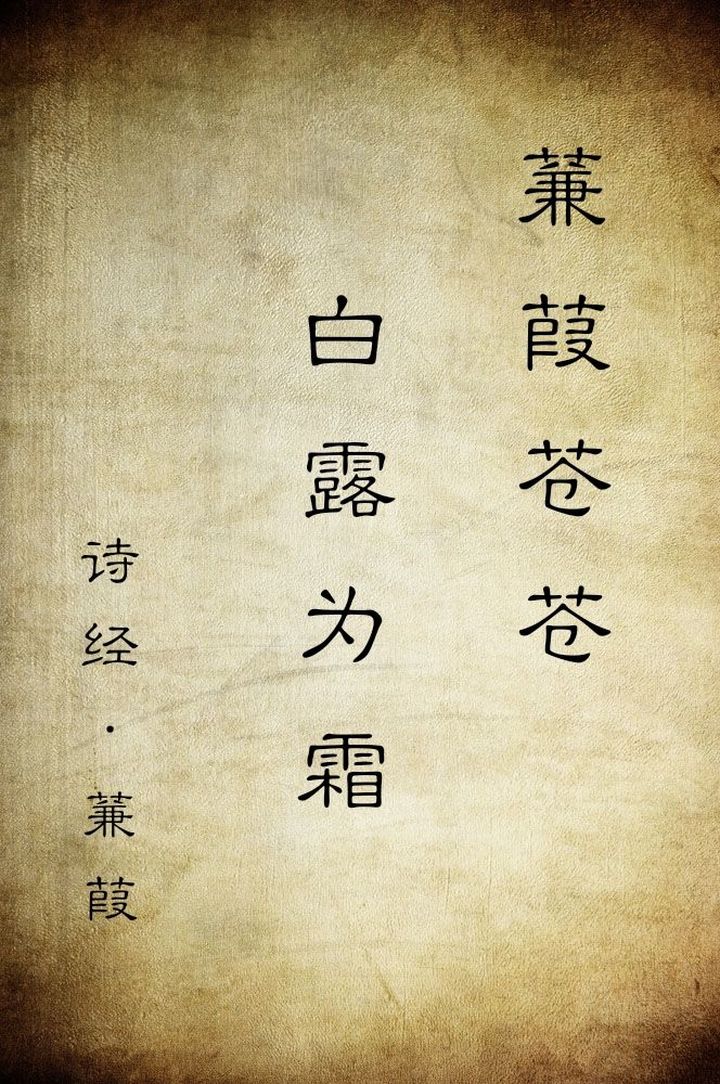 蒹葭苍苍
白露为霜
诗经·蒹葭